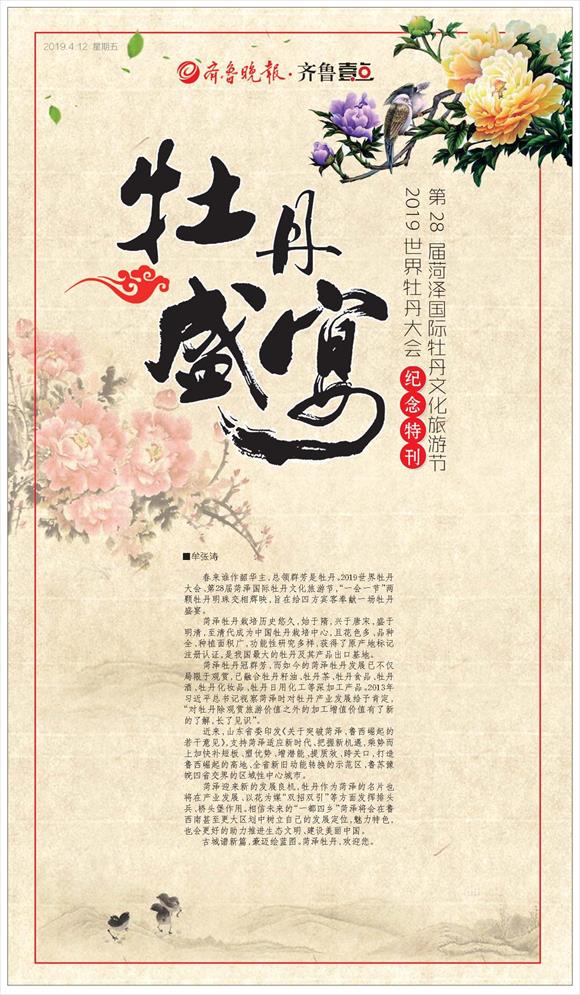 2019.4.12 星期五
齐鲁晚报·齐鲁壹点
牡丹
盛宴
第28届菏泽国际牡丹文化旅游节
2019世界牡丹大会 纪念特刊
■牟张涛
春来谁作韶华主,总领群芳是牡丹。2019世界牡丹
大会、第28届菏泽国际牡丹文化旅游节,“一会一节”两
颗牡丹明珠交相辉映,旨在给四方宾客奉献一场牡丹
盛宴。
菏泽牡丹栽培历史悠久,始于隋,兴于唐宋,盛于
明清,至清代成为中国牡丹栽培中心,且花色多、品种
全、种植面积广、功能性研究多样,获得了原产地标记
注册认证,是我国最大的牡丹及其产品出口基地。
菏泽牡丹冠群芳,而如今的菏泽牡丹发展已不仅
局限于观赏,已融合牡丹籽油、牡丹茶、牡丹食品、牡丹
酒、牡丹化妆品、牡丹日用化工等深加工产品。2013年
习近平总书记视察菏泽时对牡丹产业发展给予肯定,
“对牡丹除观赏旅游价值之外的加工增值价值有了新
的了解,长了见识”。
近来,山东省委印发《关于突破菏泽、鲁西崛起的
若干意见》,支持菏泽适应新时代、把握新机遇,乘势而
上加快补短板、塑优势、增潜能、提质效、跨关口,打造
鲁西崛起的高地、全省新旧动能转换的示范区、鲁苏豫
皖四省交界的区域性中心城市。
菏泽迎来新的发展良机,牡丹作为菏泽的名片也
将在产业发展、以花为媒“双招双引”等方面发挥排头
兵、桥头堡作用。相信未来的“一都四乡”菏泽将会在鲁
西南甚至更大区划中树立自己的发展定位,魅力特色,
也会更好的助力推进生态文明、建设美丽中国。
古城谱新篇,豪迈绘蓝图。菏泽牡丹,欢迎您。